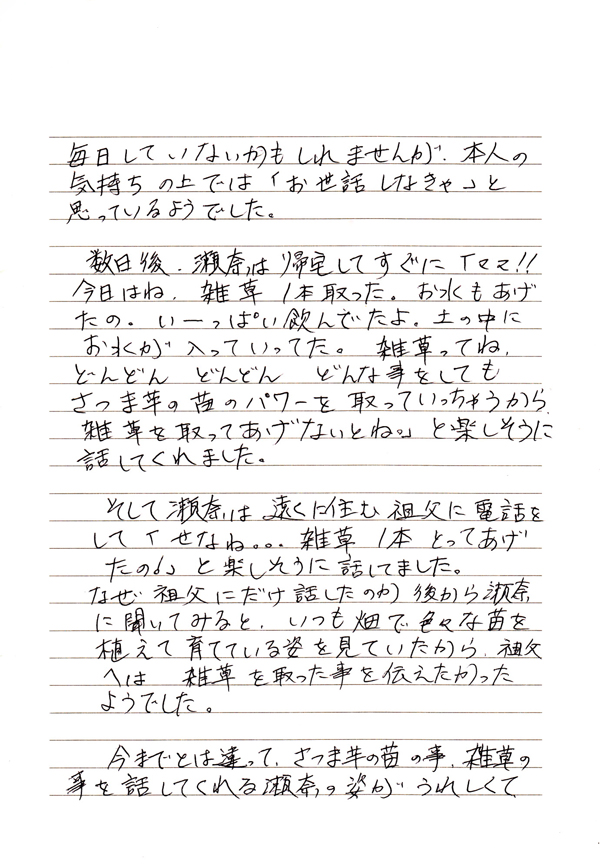 毎日していないかもしれませんが、本人の
気持ちの上では「お世話しなきゃ」と
思っているようでした。
数日後、瀬奈は帰宅してすぐに「ママ!!
今日はね、雑草1本取った。お水もあげ
たの。いーっぱい飲んでたよ。土の中に
お水が入っていってた。雑草ってね、
どんどん どんどん どんな事をしても
さつま芋の苗のパワーを取っていっちゃうから、
雑草を取ってあげないとね。」と楽しそうに
話してくれました。
そして瀬奈は遠くに住む祖父に電話を
して「せなね。。。雑草1本とってあげ
たの。」と楽しそうに話してました。
なぜ祖父にだけ話したのか後から瀬奈
に聞いてみると、いつも畑で色々な苗を
植えて育てている姿を見ていたから、祖父
へは 雑草を取った事を伝えたかった
ようでした。
今までとは違って、さつま芋の苗の事、雑草の
事を話してくれる瀬奈の姿がうれしくて